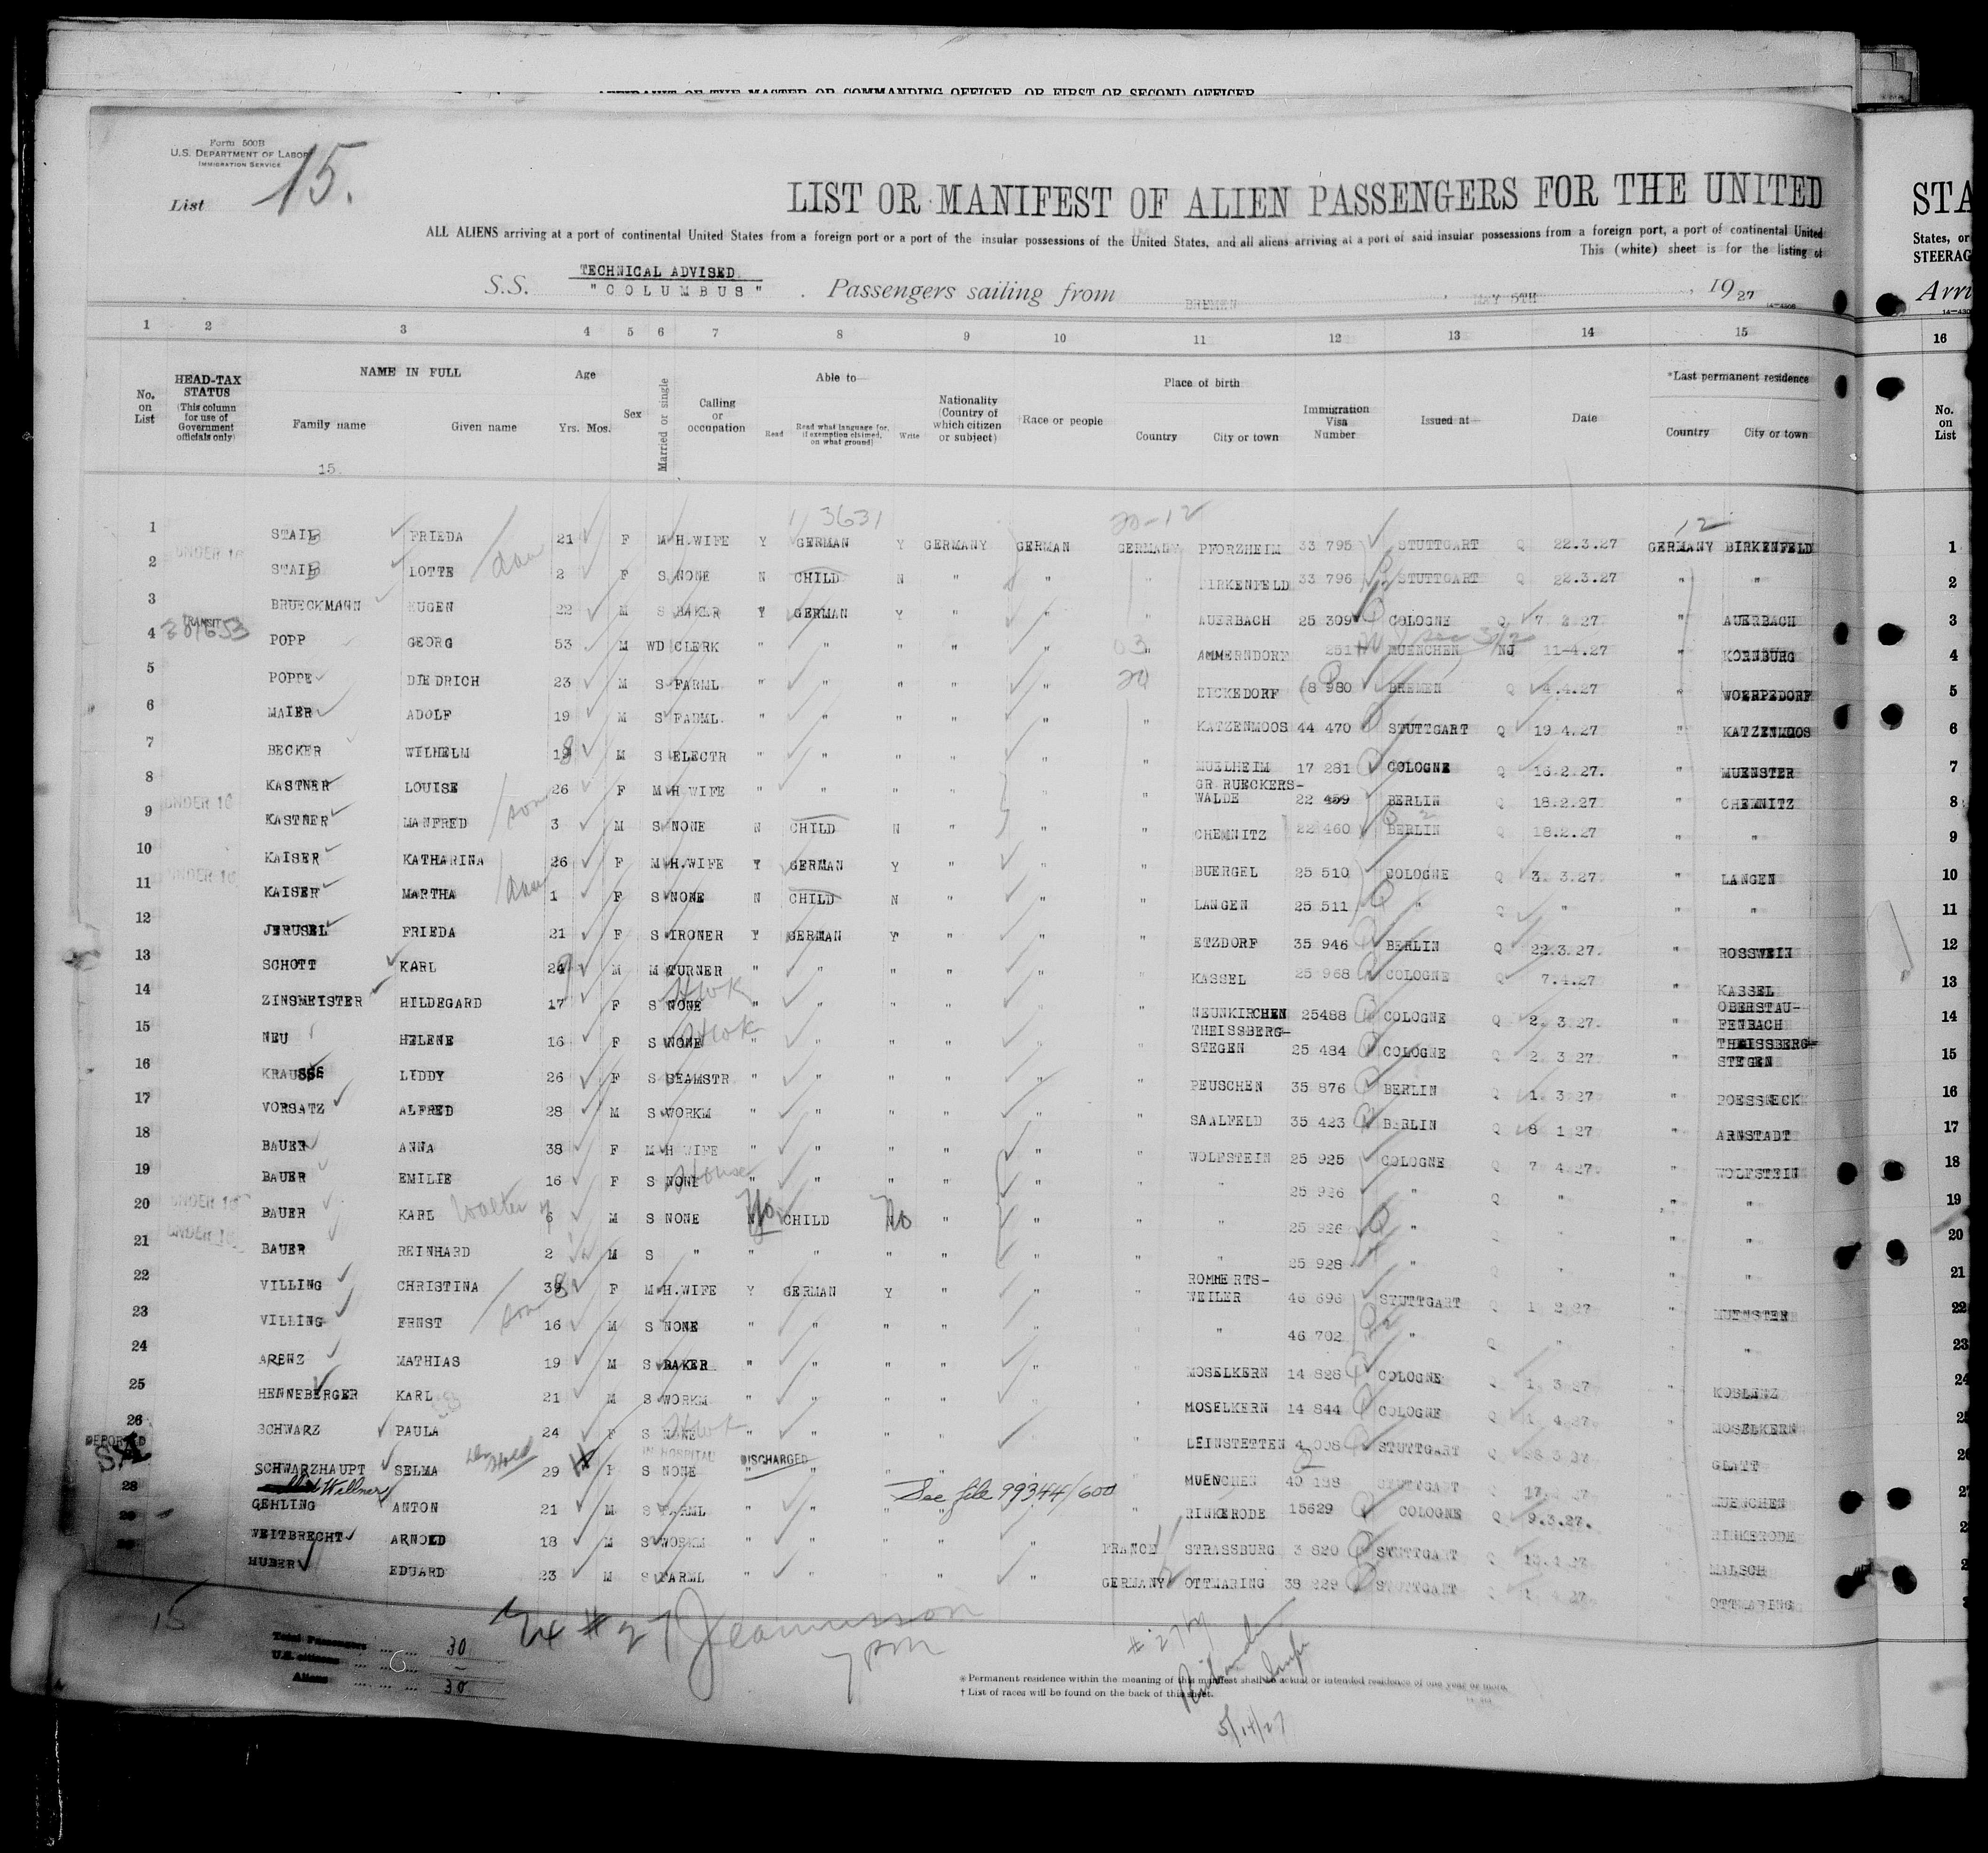 AFFIDAVIT OF THE MASTER OR COMMANDING OFFICER, OR FIRST OR SECOND OFFICER
Form 500B
U.S. DEPARTMENT OF LABOR
IMMIGRATION SERVICE
List 15.
LIST OR MANIFEST OF ALIEN PASSENGERS FOR THE UNITED STA
ALL ALIENS arriving at a port of continental United States from a foreign port or a port of the insular possessions of the United States, and all aliens arriving at a port of said insular possessions from a foreign port, a port of continental United States, or
This (white) sheet is for the listing of STEERAG
TECHNICAL ADVISED
S.S. "COLUMBUS". Passengers sailing from BREMEN, MAY 5TH, 1927 Arri
1 2 3 4 5 6 7 8 9 10 11 12 13 14 15 16
No. on List
HEAD-TAX STATUS (This column for use of Government officials only)
NAME IN FULL Family name Given name
Age Yrs. Mos.
Sex
Married or single
Calling or occupation
Able to Read Read what language (or, if exemption claimed, on what ground) Write
Nationality (Country of which citizen or subject)
Race or people
Place of birth Country City or town
Immigration Visa Number
Issued at
Date
*Last permanent residence Country City or town
No. on List
15
3631 20-12 12
1 STAIB FRIEDA 21 F M H.WIFE Y GERMAN Y GERMANY GERMAN GERMANY PFORZHEIM 33 795 STUTTGART Q 22.3.27 GERMANY BIRKENFELD 1
2 UNDER 16 STAIB LOTTE dau 2 F S NONE N CHILD N " " " BIRKENFELD 33 796 STUTTGART Q 22.3.27 " " 2
3 BRUECKMANN EUGEN 22 M S BAKER Y GERMAN Y " " " AUERBACH 25 309 COLOGNE Q 7 2 27 " AUERBACH 3
4 TRANSIT POPP GEORG 53 M WD CLERK " " " " " 03 " AMMERNDORF 251 MUENCHEN NJ 11-4.27 " KORNBURG 4
5 POPPE DIEDRICH 23 M S FARML " " " " " 20 EICKEDORF 8 980 BREMEN Q 4.4.27 " WOERPEDORF 5
6 MAIER ADOLF 19 M S FARML. " " " " " " KATZENMOOS 44 470 STUTTGART Q 19 4.27 " KATZENMOOS 6
7 BECKER WILHELM 18 M S ELECTR " " " " " " MUELHEIM 17 281 COLOGNE Q 16.2.27. " MUENSTER 7
8 KASTNER LOUISE 26 F M H WIFE " " " " " " GR RUECKERS-WALDE 22 459 BERLIN Q 18.2.27 " CHEMNITZ 8
9 UNDER 16 KASTNER MANFRED son 3 M S NONE N CHILD N " " " CHEMNITZ 22 460 BERLIN Q 18.2.27 " " 9
10 KAISER KATHARINA 26 F M H.WIFE Y GERMAN Y " " " BUERGEL 25 510 COLOGNE Q 3. 3.27. " LANGEN 10
11 UNDER 16 KAISER MARTHA dau 1 F S NONE N CHILD N " " " LANGEN 25 511 " Q " " " 11
12 JERUSEL FRIEDA 21 F S IRONER Y GERMAN Y " " " ETZDORF 35 946 BERLIN Q 22.3.27 " ROSSWEIN 12
13 SCHOTT KARL 29 M M TURNER " " " " " " KASSEL 25 968 COLOGNE Q 7.4.27 " KASSEL 13
14 ZINSMEISTER HILDEGARD 17 F S NONE Hwk " " " " " " NEUNKIRCHEN 25488 COLOGNE Q 2. 3 27. " OBERSTAU-FENBACH 14
15 NEU HELENE 16 F S NONE Hwk " " " " " " THEISSBERG-STEGEN 25 484 COLOGNE Q 2. 3 27 " THEISSBERG-STEGEN 15
16 KRAUSSE LIDDY 26 F S SEAMSTR " " " " " " PEUSCHEN 35 876 BERLIN Q 1. 3 27 " POESSNECK 16
17 VORSATZ ALFRED 28 M S WORKM " " " " " " SAALFELD 35 423 BERLIN Q 8 1 27 " ARNSTADT 17
18 BAUER ANNA 38 F M H WIFE " " " " " " WOLFSTEIN 25 925 COLOGNE Q 7 4.27. " WOLFSTEIN 18
19 BAUER EMILIE 16 F S NONE House " " " " " " " 25 926 " Q " " " 19
20 UNDER 16 BAUER KARL Walter 6 M S NONE No CHILD No " " " " 25 926 " " " " 20
21 UNDER 16 BAUER REINHARD 2 M S " " " " " " " " 25 928 " Q " " " 21
22 VILLING CHRISTINA 38 F M H.WIFE Y GERMAN Y " " " ROMMERTS-WEILER 46 696 STUTTGART Q 1 2.27 " MUENSTER 22
23 VILLING ERNST son 16 M S NONE " " " " " " " 46 702 " Q " " " 23
24 ARENZ MATHIAS 19 M S BAKER " " " " " " MOSELKERN 14 828 COLOGNE Q 1. 3 27 KOBLENZ 24
25 HENNEBERGER KARL 21 M S WORKM " " " " " MOSELKERN 14 844 COLOGNE Q 1. 4.27. MOSELKERN 25
26 SCHWARZ PAULA 24 F S NONE Hwk " " " " " LEINSTETTEN STUTTGART Q GLATT 26
DEPORTED SCHWARZHAUPT SELMA 29 F S NONE IN HOSPITAL DISCHARGED " " " MUENCHEN 40 188 STUTTGART 17. MUENCHEN 27
Willner See file 99344/600
28 GEHLING ANTON 21 M S FARML " " " " " RINKERODE 15629 COLOGNE Q 9.3.27. RINKERODE
WEITBRECHT ARNOLD 18 M S WORKM " " " " " FRANCE STRASSBURG 3 820 STUTTGART Q MALSCH
HUBER EDUARD 23 M S FARML " " " " " GERMANY OTTMARING 38 229 STUTTGART Q OTTMARING
15
# 27 Jeamusson
7 PM
Total Passengers ... ... 30
U.S. citizens ... ... —
Aliens ... ... ... 30
# 27
5/14/27
*Permanent residence within the meaning of this manifest shall be actual or intended residence of one year or more.
† List of races will be found on the back of this sheet.